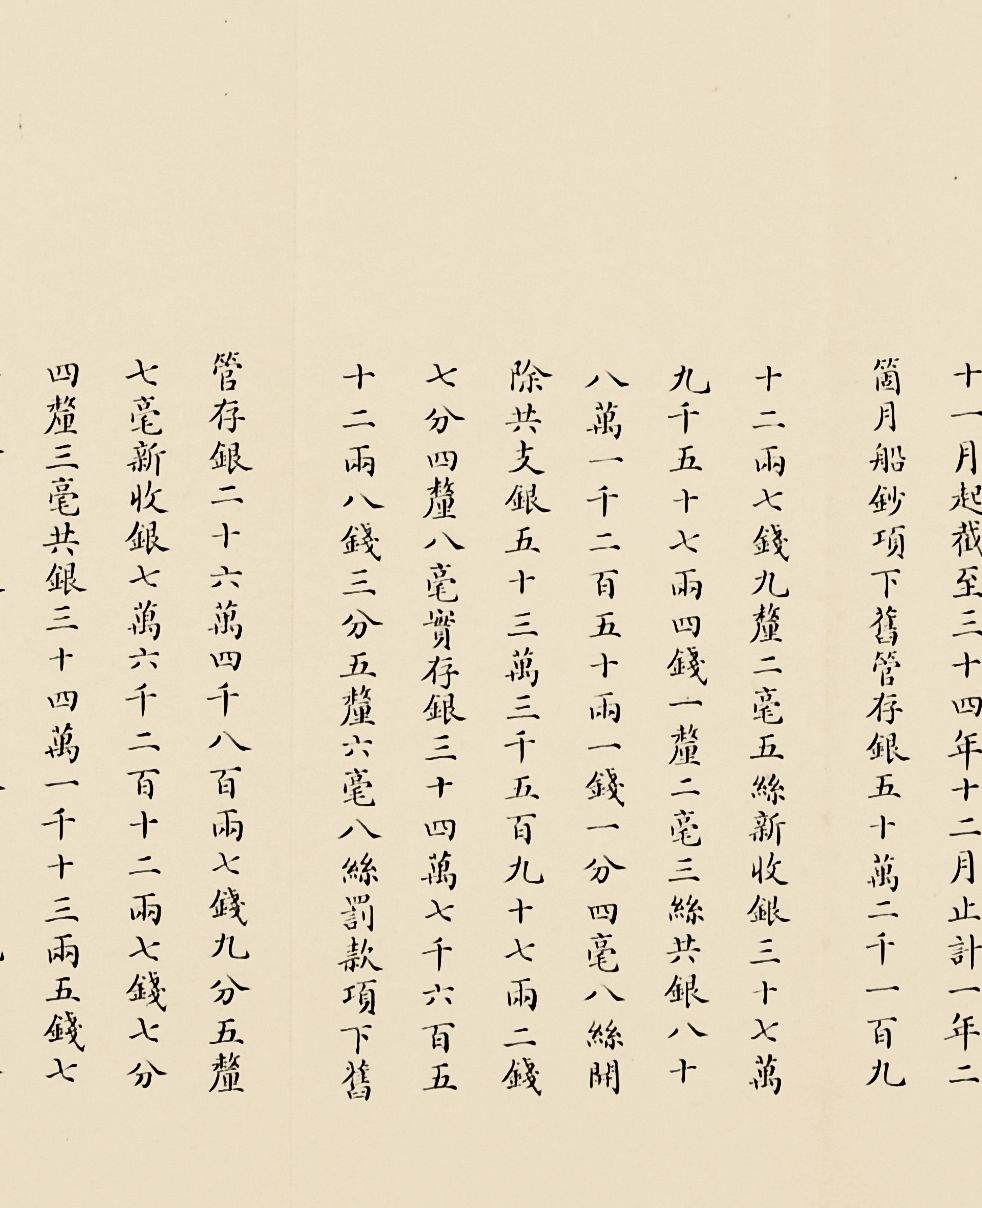 十一月起截至三十四年十二月止計一年二
箇月船鈔項下舊管存銀五十萬二千一百九
十二兩七錢九釐二毫五絲新收銀三十七萬
九千五十七兩四錢一釐二毫三絲共銀八十
八萬一千二百五十兩一錢一分四毫八絲開
除共支銀五十三萬三千五百九十七兩二錢
七分四釐八毫實存銀三十四萬七千六百五
十二兩八錢三分五釐六毫八絲罰款項下舊
管存銀二十六萬四千八百兩七錢九分五釐
七毫新收銀七萬六千二百十二兩七錢七分
四釐三毫共銀三十四萬一千十三兩五錢七